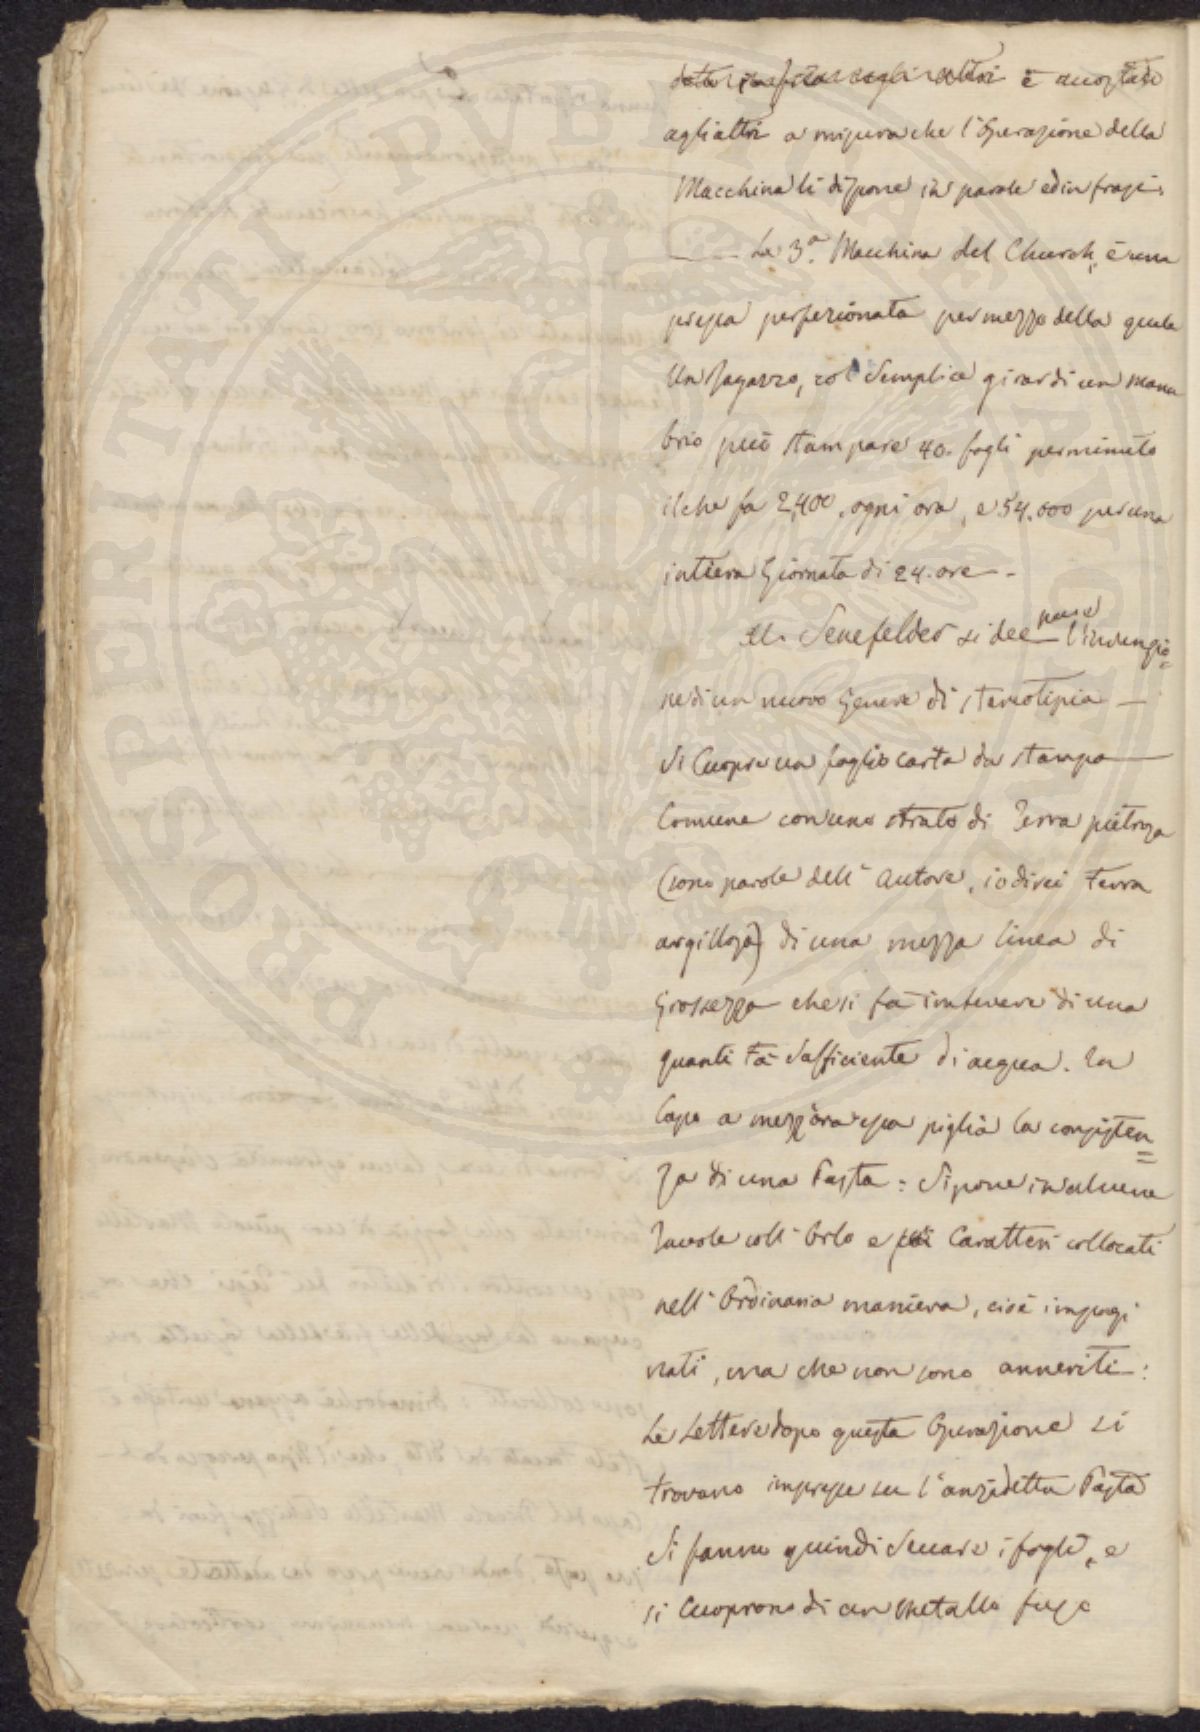 è accostato
agli altri a misura che l'Operazione della
Macchina li dispone in parole ed in frasi.
La 3.a Macchina del Church, è una
pressa perfezionata per mezzo della quale
un Ragazzo, col semplice girar di un manu
brio può stampare 40. fogli per minuto
il che fa 2,400, ogni ora, e 54.000 per una
intiera Giornata di 24. ore -
Al Senefelder si dee pure l'invenzio=
ne di un nuovo Genere di stereotipia —
Si Cuopre un foglio carta da stampa
Comune con uno strato di Terra pietrosa
(sono parole dell' Autore, io direi Terra
argillosa) di una mezza linea di
Grossezza che si fa imbevere di una
quantità sufficiente di acqua. In
Capo a mezz'ora essa piglia la consisten=
za di una Pasta: Si pone in alcune
Tavole coll' Orlo e Caratteri collocati
nell' Ordinaria maniera, cioè impagi
nati, ma che non sono anneriti:
Le Lettere dopo questa Operazione si
trovano impresse su l'anzidetta Pasta
Si fanno quindi seccare i fogli, e
si Cuoprono di un Metallo fuso
PROSPERITATI PVBLICAE AVGENDAE